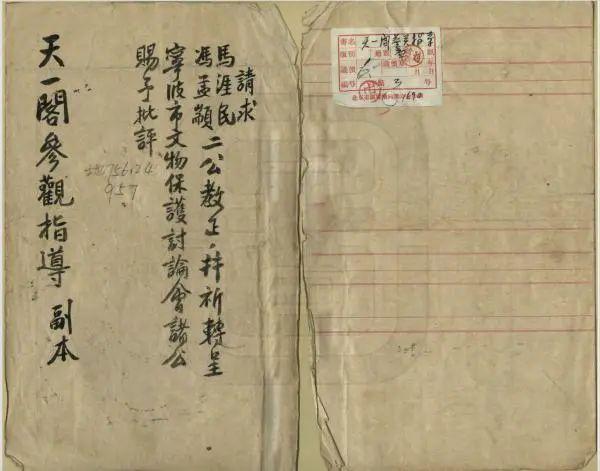 請求
馬涯民
馮孟顓
二公教正，并祈轉呈
寧波市文物保護討論會諸公
賜予批評
天一閣參觀指導 副本
957
書名 天一閣